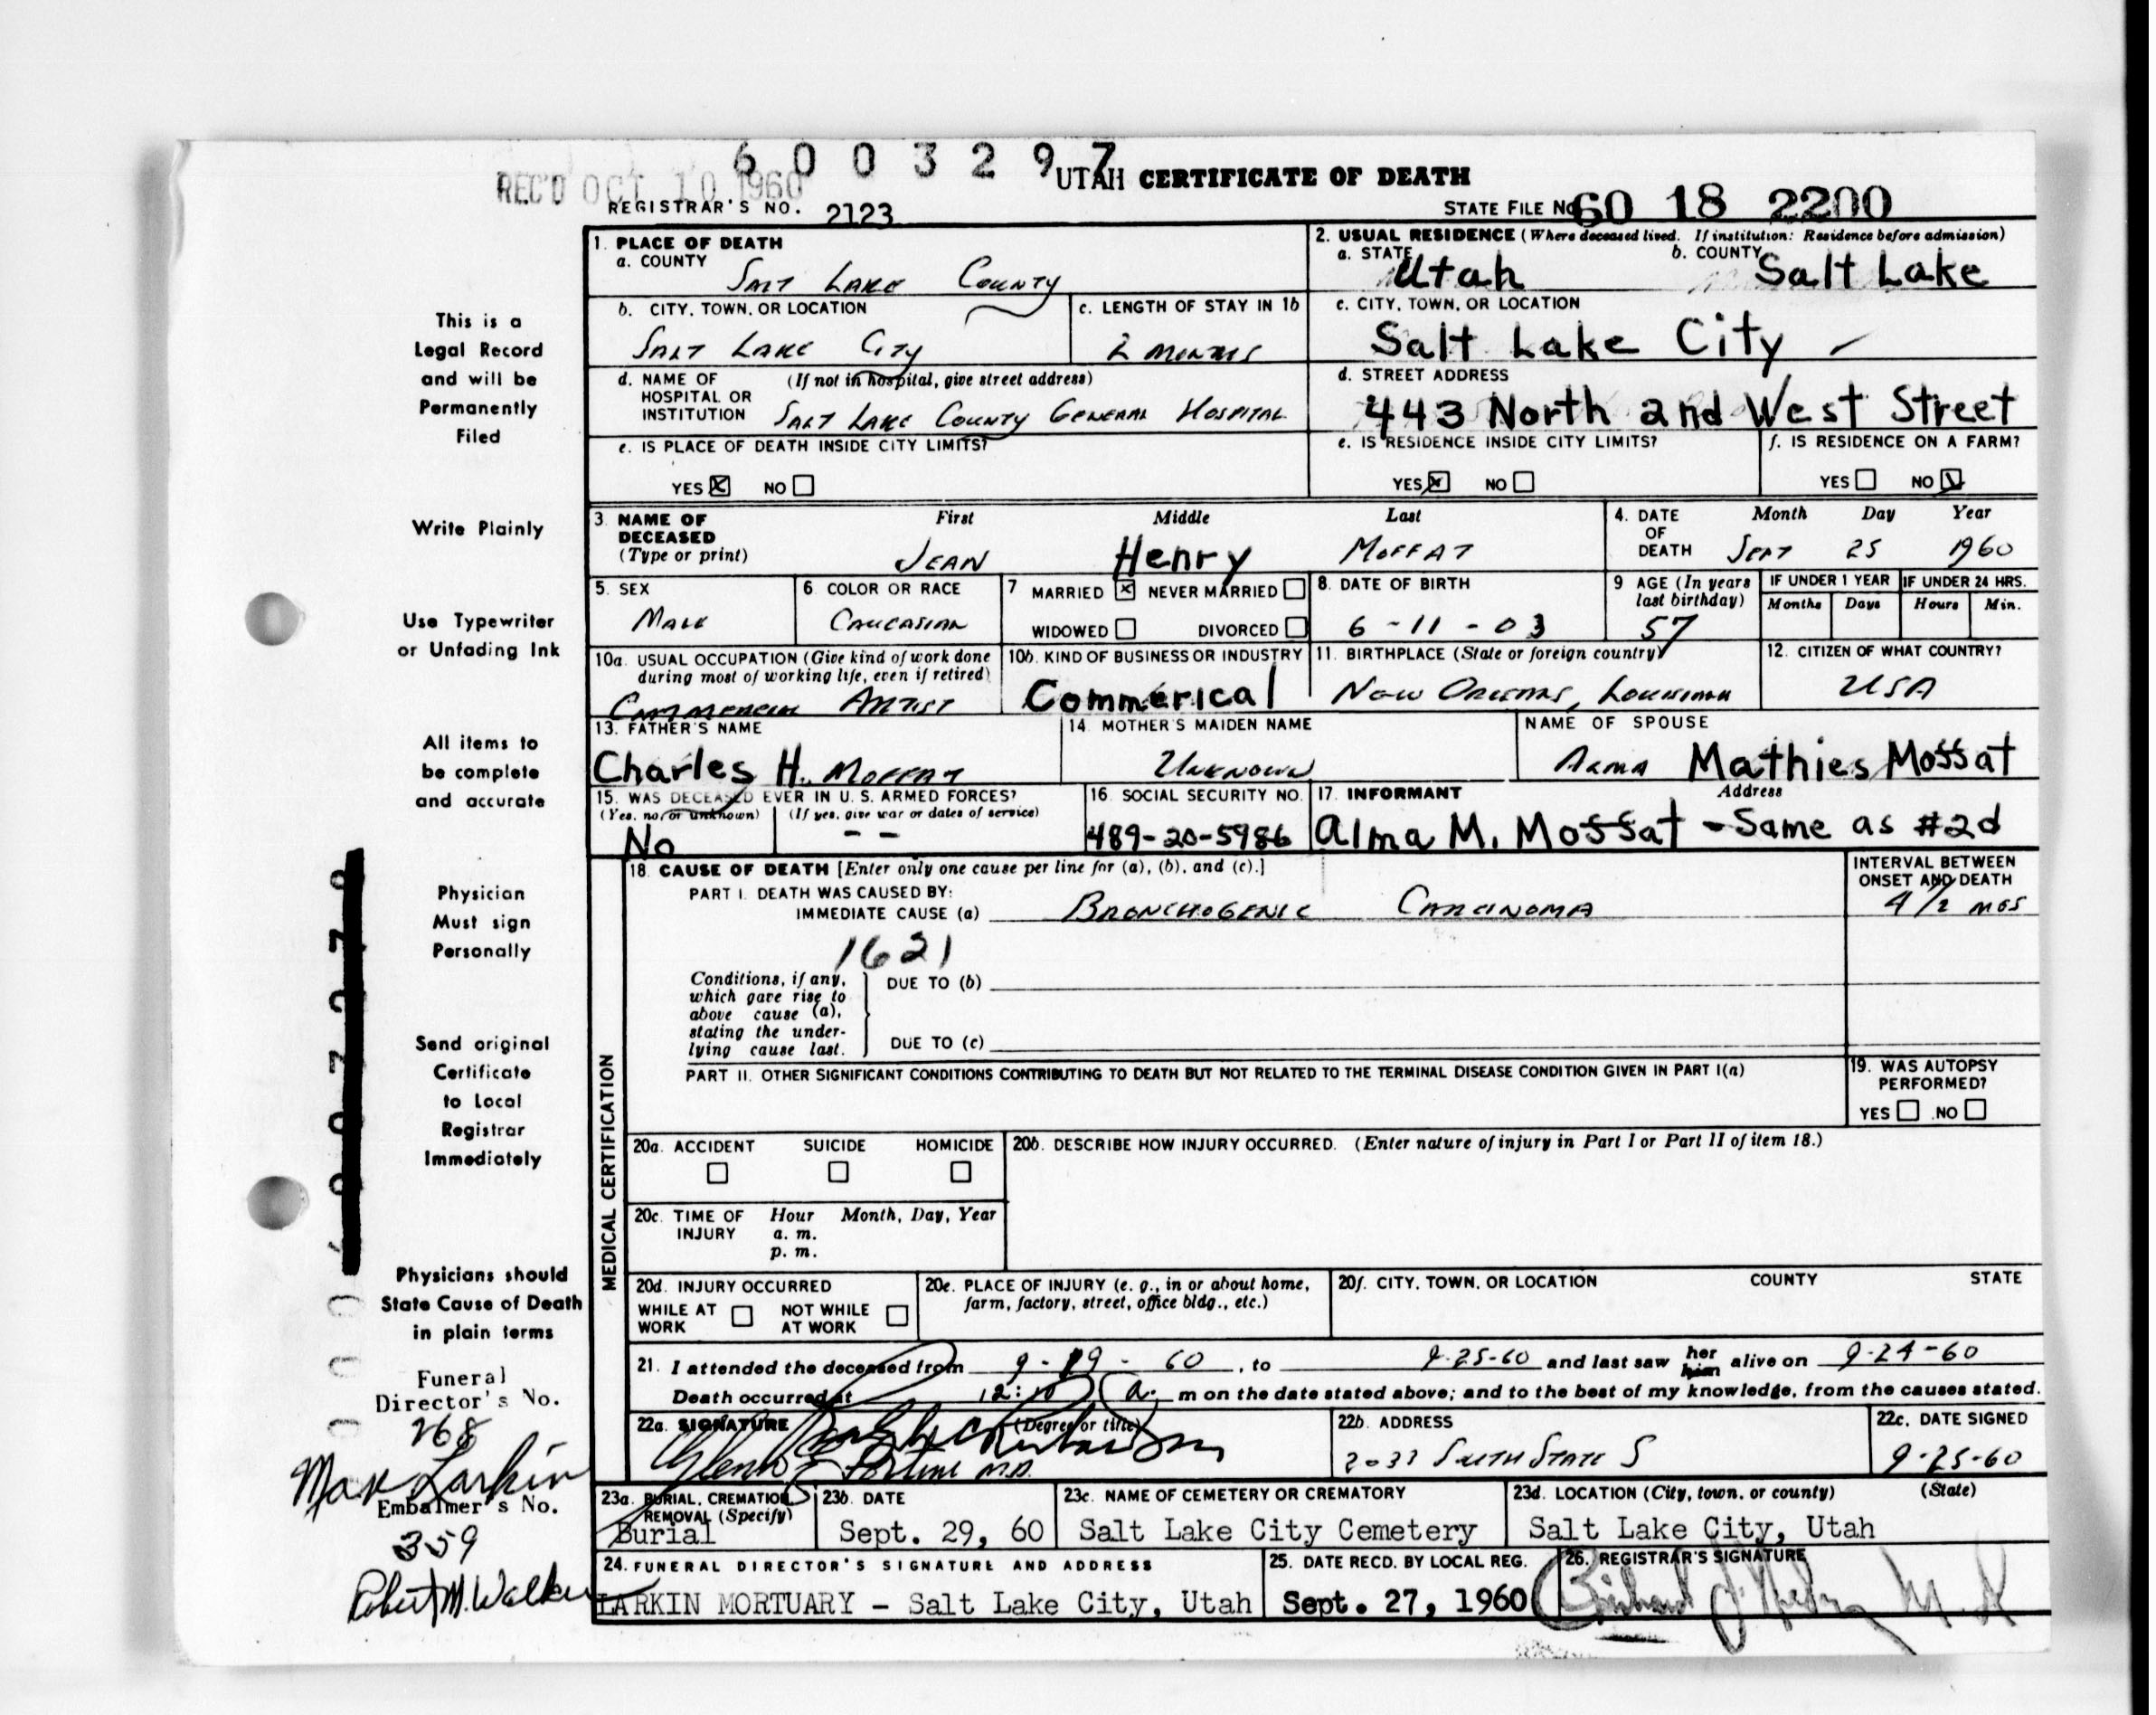 6 0 0 3 2 9 7
REC'D OCT 10 1960
UTAH CERTIFICATE OF DEATH
REGISTRAR'S NO. 2123
STATE FILE NO. 60 18 2200
1. PLACE OF DEATH
a. COUNTY
SALT LAKE COUNTY
2. USUAL RESIDENCE (Where deceased lived. If institution: Residence before admission)
a. STATE Utah
b. COUNTY Salt Lake
b. CITY, TOWN, OR LOCATION
SALT LAKE CITY
c. LENGTH OF STAY IN 1b
2 MONTHS
c. CITY, TOWN, OR LOCATION
Salt Lake City
d. NAME OF HOSPITAL OR INSTITUTION (If not in hospital, give street address)
SALT LAKE COUNTY GENERAL HOSPITAL
d. STREET ADDRESS
443 North 2nd West Street
e. IS PLACE OF DEATH INSIDE CITY LIMITS?
YES NO
e. IS RESIDENCE INSIDE CITY LIMITS?
YES NO
f. IS RESIDENCE ON A FARM?
YES NO
3. NAME OF DECEASED (Type or print)
First Middle Last
JEAN Henry MOFFAT
4. DATE OF DEATH
Month Day Year
SEPT 25 1960
5. SEX
MALE
6. COLOR OR RACE
CAUCASIAN
7 MARRIED NEVER MARRIED
WIDOWED DIVORCED
8. DATE OF BIRTH
6-11-03
9 AGE (In years last birthday)
57
IF UNDER 1 YEAR
Months Days
IF UNDER 24 HRS.
Hours Min.
10a. USUAL OCCUPATION (Give kind of work done during most of working life, even if retired)
COMMERCIAL ARTIST
10b. KIND OF BUSINESS OR INDUSTRY
Commerical
11. BIRTHPLACE (State or foreign country)
NEW ORLEANS, LOUISIANA
12. CITIZEN OF WHAT COUNTRY?
USA
13. FATHER'S NAME
Charles H. MOFFAT
14. MOTHER'S MAIDEN NAME
UNKNOWN
NAME OF SPOUSE
ALMA Mathies Moffat
15. WAS DECEASED EVER IN U. S. ARMED FORCES?
(Yes, no, or unknown) (If yes, give war or dates of service)
No - -
16. SOCIAL SECURITY NO.
489-20-5986
17. INFORMANT Address
Alma M. Moffat - Same as #2d
MEDICAL CERTIFICATION
18. CAUSE OF DEATH [Enter only one cause per line for (a), (b), and (c).]
INTERVAL BETWEEN ONSET AND DEATH
PART I. DEATH WAS CAUSED BY:
IMMEDIATE CAUSE (a) BRONCHOGENIC CARCINOMA 4 1/2 MOS
1621
Conditions, if any, which gave rise to above cause (a), stating the underlying cause last.
DUE TO (b)
DUE TO (c)
PART II. OTHER SIGNIFICANT CONDITIONS CONTRIBUTING TO DEATH BUT NOT RELATED TO THE TERMINAL DISEASE CONDITION GIVEN IN PART I(a)
19. WAS AUTOPSY PERFORMED?
YES NO
20a. ACCIDENT SUICIDE HOMICIDE
20b. DESCRIBE HOW INJURY OCCURRED. (Enter nature of injury in Part I or Part II of item 18.)
20c. TIME OF INJURY Hour Month, Day, Year
a. m.
p. m.
20d. INJURY OCCURRED
WHILE AT WORK NOT WHILE AT WORK
20e. PLACE OF INJURY (e. g., in or about home, farm, factory, street, office bldg., etc.)
20f. CITY, TOWN, OR LOCATION COUNTY STATE
21. I attended the deceased from 9-19-60, to 9-25-60 and last saw her him alive on 9-24-60
Death occurred at 12:10 a. m on the date stated above; and to the best of my knowledge, from the causes stated.
22a. SIGNATURE (Degree or title)
M.D.
22b. ADDRESS
2033 SOUTH STATE S
22c. DATE SIGNED
9-25-60
23a. BURIAL, CREMATION, REMOVAL (Specify)
Burial
23b. DATE
Sept. 29, 60
23c. NAME OF CEMETERY OR CREMATORY
Salt Lake City Cemetery
23d. LOCATION (City, town, or county) (State)
Salt Lake City, Utah
24. FUNERAL DIRECTOR'S SIGNATURE AND ADDRESS
LARKIN MORTUARY - Salt Lake City, Utah
25. DATE RECD. BY LOCAL REG.
Sept. 27, 1960
26. REGISTRAR'S SIGNATURE
This is a
Legal Record
and will be
Permanently
Filed
Write Plainly
Use Typewriter
or Unfading Ink
All items to
be complete
and accurate
Physician
Must sign
Personally
Send original
Certificate
to Local
Registrar
Immediately
Physicians should
State Cause of Death
in plain terms
Funeral
Director's No.
268
Max Larkin
Embalmer's No.
359
Robert M. Walker